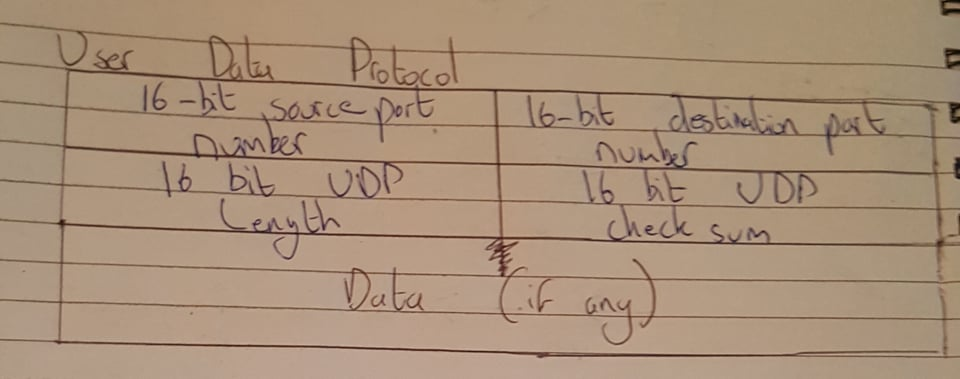 User Data Protocol
16-bit source port
number
16-bit destination port
number
16 bit UDP
Length
16 bit UDP
check sum
Data (if any)